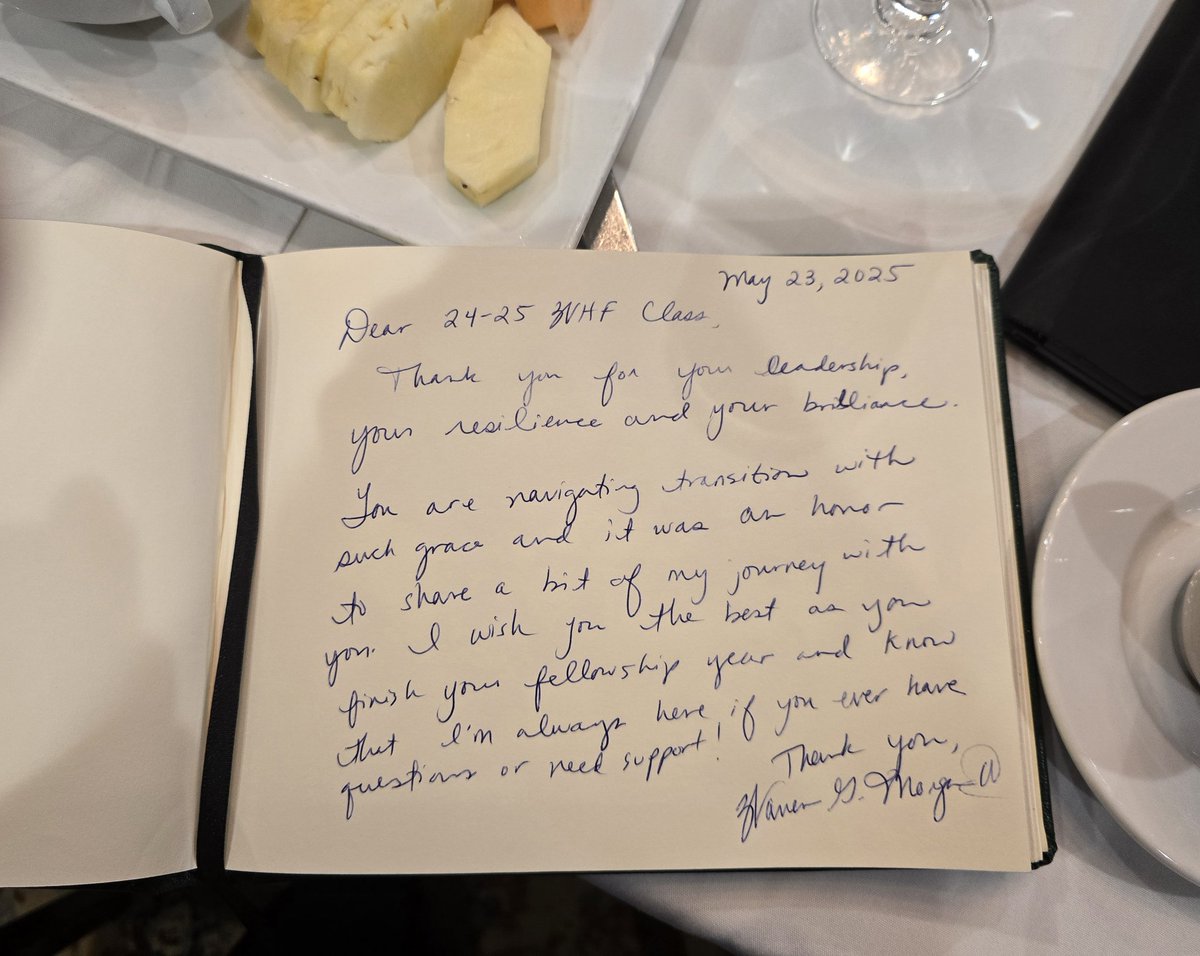 May 23, 2025
Dear 24-25 WHF Class,
Thank you for your leadership,
your resilience and your brilliance.
You are navigating transition with
such grace and it was an honor
to share a bit of my journey with
you. I wish you the best as you
finish your fellowship year and know
that I'm always here, if you ever have
questions or need support!
Thank you,
Warren G. Morgan